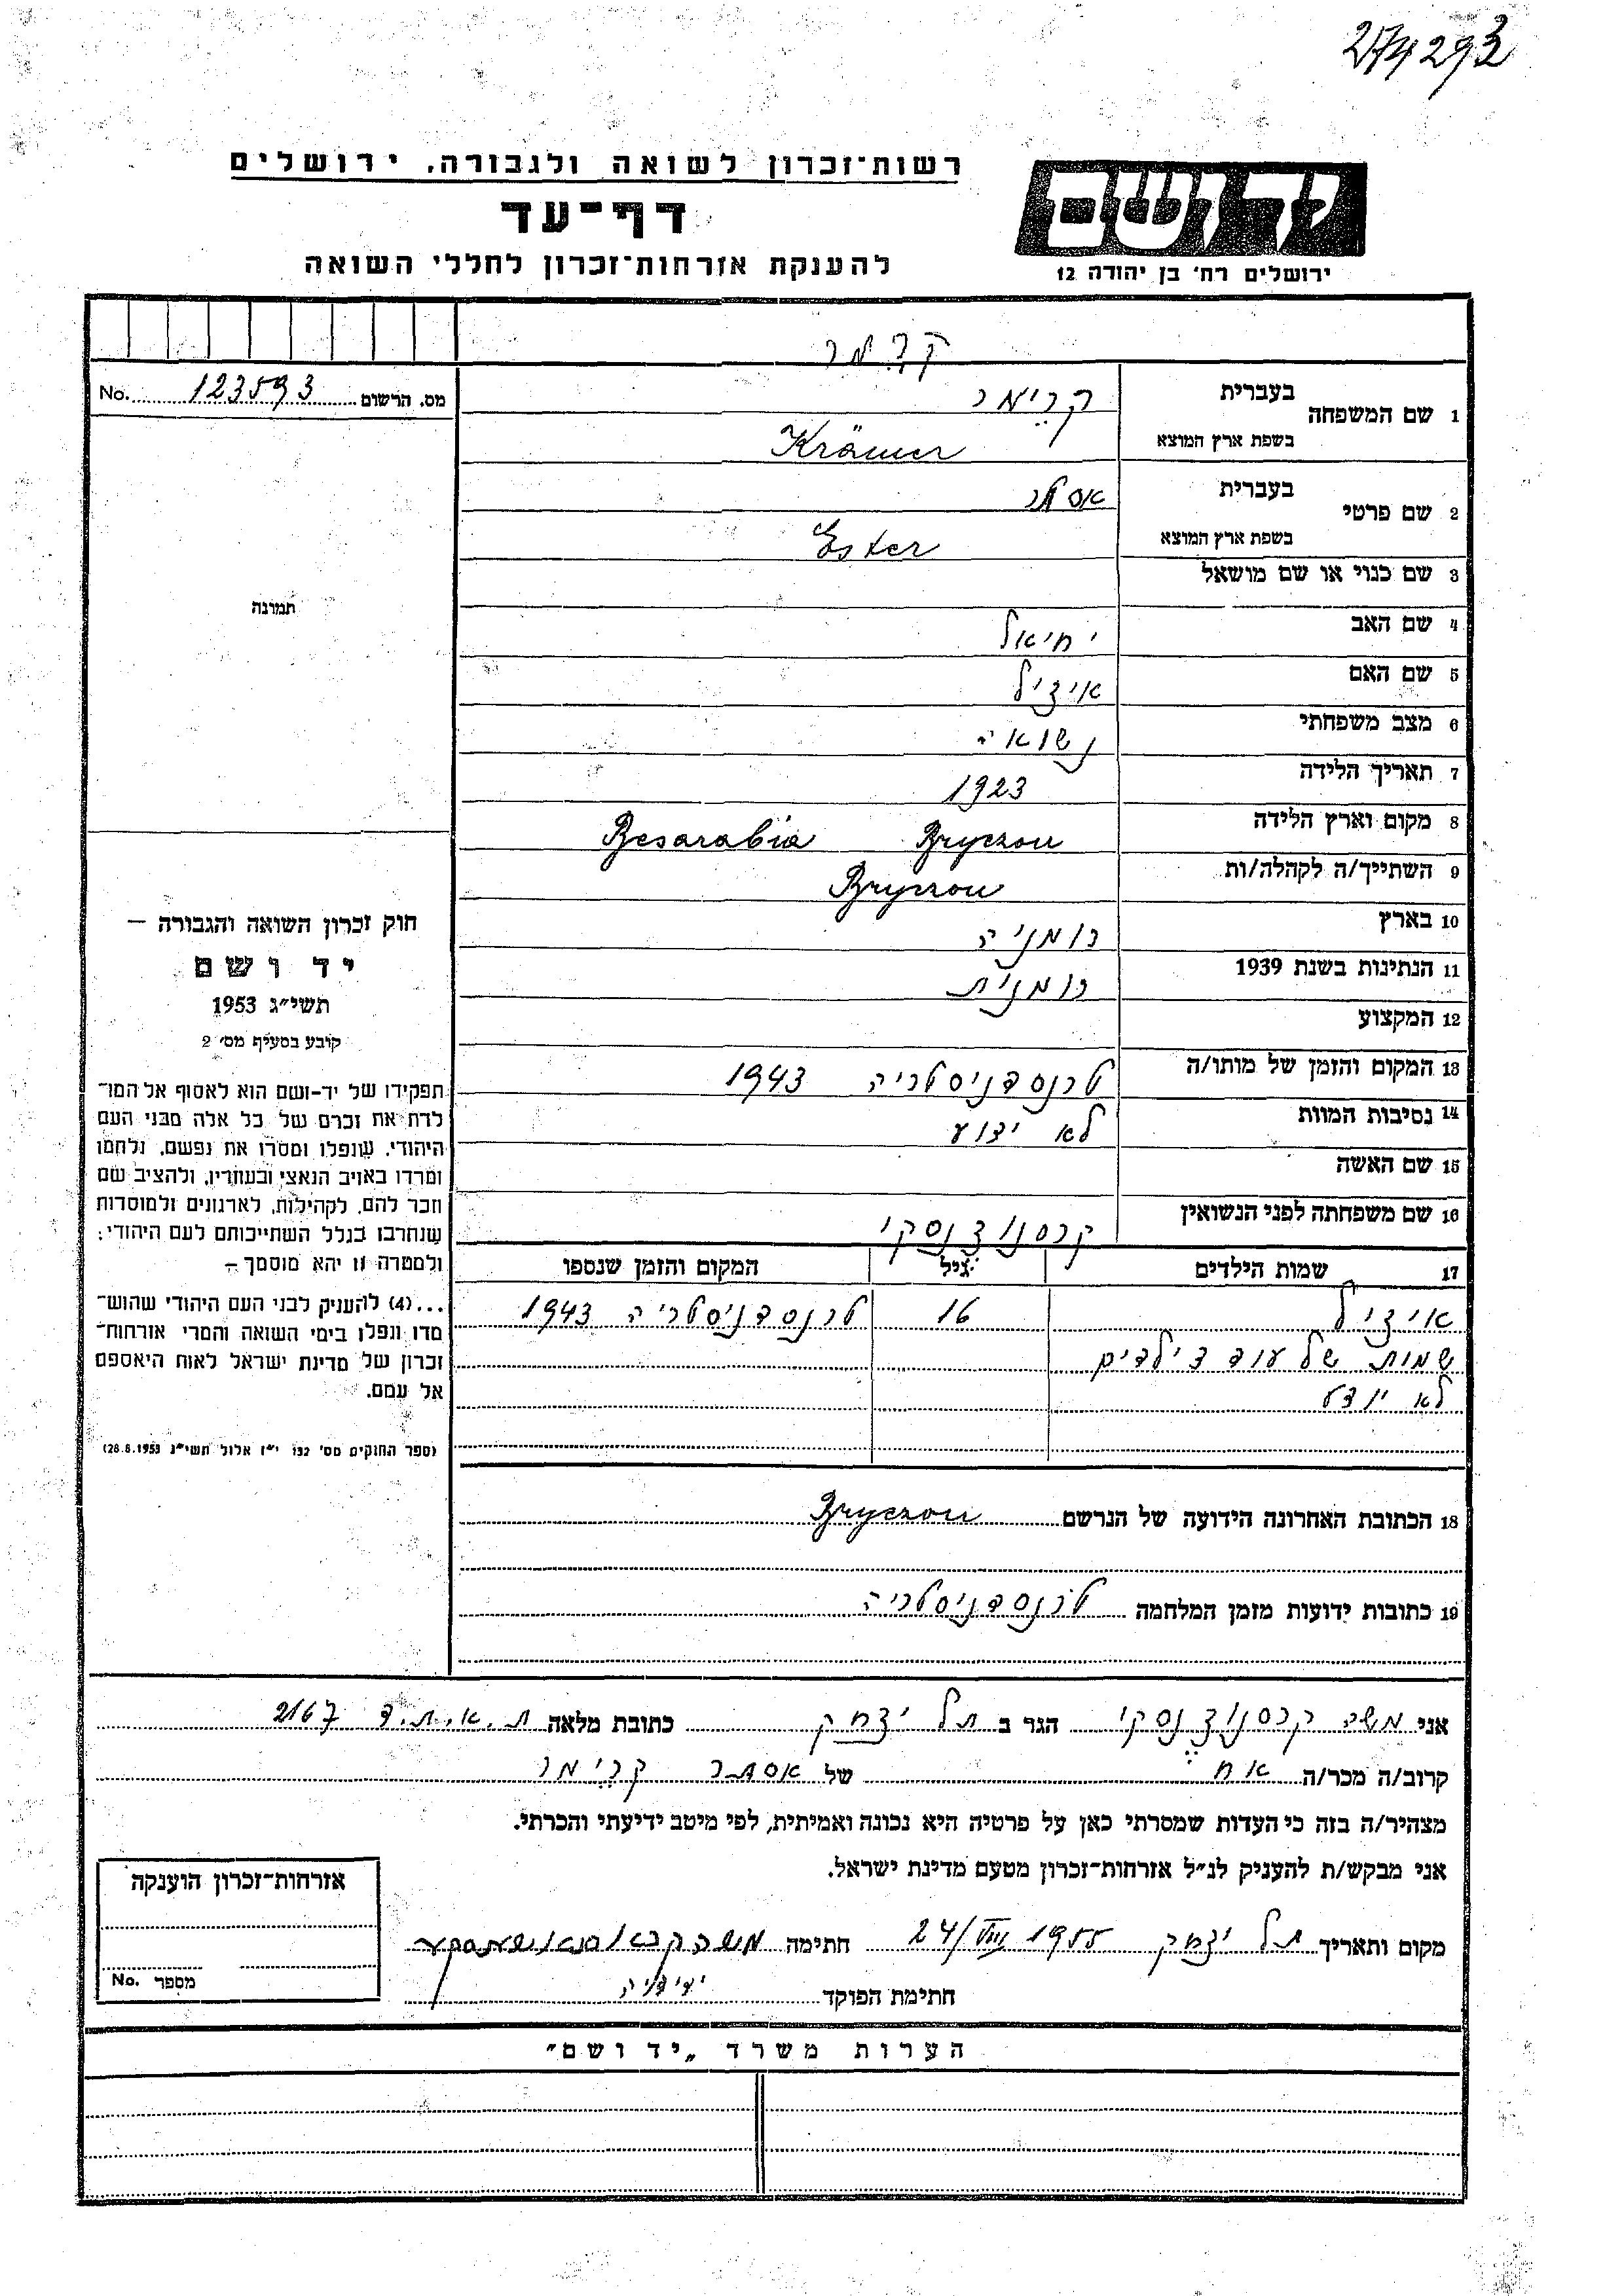 274293
רשות־זכרון לשואה ולגבורה, ירושלים
דף־עד
להענקת אזרחות־זכרון לחללי השואה
יד ושם
ירושלים רח' בן יהודה 12
מס. הרשום 123593 No.
1 שם המשפחה
בעברית קרימר
בשפת ארץ המוצא Krämer
2 שם פרטי
בעברית אסתר
בשפת ארץ המוצא Ester
3 שם כנוי או שם מושאל
4 שם האב יחיאל
5 שם האם
6 מצב משפחתי נשואה
7 תאריך הלידה 1923
8 מקום וארץ הלידה Bryczon Besarabia
9 השתייך/ה לקהלה/ות Bryczon
10 בארץ רומניה
11 הנתינות בשנת 1939 רומנית
12 המקצוע
13 המקום והזמן של מותו/ה טרנסדניסטריה 1943
14 נסיבות המוות לא ידוע
15 שם האשה
16 שם משפחתה לפני הנשואין
17 שמות הילדים גיל המקום והזמן שנספו
16 טרנסדניסטריה 1943
שמות של עוד ילדים
לא
18 הכתובת האחרונה הידועה של הנרשם Bryczon
19 כתובות ידועות מזמן המלחמה טרנסדניסטריה
תמונה
חוק זכרון השואה והגבורה –
יד ושם
תשי״ג 1953
קובע בסעיף מס' 2
תפקידו של יד-ושם הוא לאסוף אל המו־
לדת את זכרם של כל אלה מבני העם
היהודי, שנפלו ומסרו את נפשם, נלחמו
ומרדו באויב הנאצי ובעוזריו, ולהציב שם
וזכר להם, לקהילות, לארגונים ולמוסדות
שנחרבו בגלל השתייכותם לעם היהודי;
ולמטרה זו יהא מוסמך –
...(4) להעניק לבני העם היהודי שהוש־
מדו ונפלו בימי השואה והמרי אזרחות־
זכרון של מדינת ישראל לאות היאספם
אל עמם.
(ספר החוקים מס' 132 י״ז אלול תשי״ג 28.8.1953)
אני משה הגר ב תל יצחק כתובת מלאה 2167
קרוב/ה מכר/ה אח של אסתר קרימר
מצהיר/ה בזה כי העדות שמסרתי כאן על פרטיה היא נכונה ואמיתית, לפי מיטב ידיעתי והכרתי.
אני מבקש/ת להעניק לנ״ל אזרחות־זכרון מטעם מדינת ישראל.
מקום ותאריך תל יצחק 24/VIII 1955 חתימה משה
חתימת הפוקד
אזרחות־זכרון הוענקה
מספר No.
הערות משרד „יד ושם״